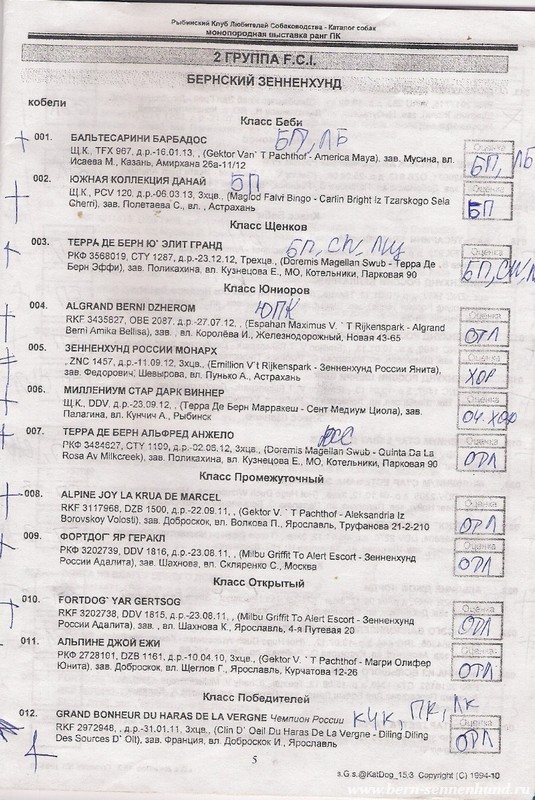 Рыбинский Клуб Любителей Собаководства - Каталог собак
монопородная выставка ранг ПК
2 ГРУППА F.C.I.
БЕРНСКИЙ ЗЕННЕНХУНД
кобели
Класс Беби
001. БАЛЬТЕСАРИНИ БАРБАДОС БП, ЛБ
Щ.К., TFX 967, д.р.-16.01.13, , (Gektor Van` T Pachthof - America Maya), зав. Мусина, вл.
Исаева М., Казань, Амирхана 26а-11/12
Оценка
БП, ЛБ
002. ЮЖНАЯ КОЛЛЕКЦИЯ ДАНАЙ БП
Щ.К., PCV 120, д.р.-06.03.13, 3хцв., (Maglod Falvi Bingo - Carlin Bright Iz Tzarskogo Sela
Cherri), зав. Полетаева С., вл. , Астрахань
Оценка
БП
Класс Щенков
003. ТЕРРА ДЕ БЕРН Ю' ЭЛИТ ГРАНД БП, CW, ЛЩ
РКФ 3568019, CTY 1287, д.р.-23.12.12, Трехцв., (Doremis Magellan Swub - Терра Де
Берн Эффи), зав. Поликахина, вл. Кузнецова Е., МО, Котельники, Парковая 90
Оценка
БП, CW,
Класс Юниоров
004. ALGRAND BERNI DZHEROM ЮПК
RKF 3435827, OBE 2087, д.р.-27.07.12, , (Espahan Maximus V. ` T Rijkenspark - Algrand
Berni Amika Bellisa), зав. , вл. Королёва И., Железнодорожный, Новая 43-65
Оценка
ОТЛ
005. ЗЕННЕНХУНД РОССИИ МОНАРХ
, ZNC 1457, д.р.-11.09.12, 3хцв., (Emillion V`t Rijkenspark - Зенненхунд России Янита),
зав. Федорович, Шевырова, вл. Пунько А., Астрахань
Оценка
ХОР
006. МИЛЛЕНИУМ СТАР ДАРК ВИННЕР
Щ.К., DDV, д.р.-23.09.12, , (Терра Де Берн Марракеш - Сент Медиум Циола), зав.
Палагина, вл. Кунчич А., Рыбинск
Оценка
ОЧ. ХОР
007. ТЕРРА ДЕ БЕРН АЛЬФРЕД АНЖЕЛО ЮСС
РКФ 3484627, CTY 1199, д.р.-02.05.12, 3хцв., (Doremis Magellan Swub - Quinta Da La
Rosa Av Milkcreek), зав. Поликахина, вл. Кузнецова Е., МО, Котельники, Парковая 90
Оценка
ОТЛ
Класс Промежуточный
008. ALPINE JOY LA KRUA DE MARCEL
RKF 3117968, DZB 1500, д.р.-22.09.11, , (Gektor V. ` T Pachthof - Aleksandria Iz
Borovskoy Volosti), зав. Доброскок, вл. Волкова П., Ярославль, Труфанова 21-2-210
Оценка
ОТЛ
009. ФОРТДОГ' ЯР ГЕРАКЛ
РКФ 3202739, DDV 1816, д.р.-23.08.11, , (Milbu Griffit To Alert Escort - Зенненхунд
России Адалита), зав. Шахнова, вл. Скляренко С., Москва
Оценка
ОТЛ
Класс Открытый
010. FORTDOG` YAR GERTSOG
RKF 3202738, DDV 1815, д.р.-23.08.11, , (Milbu Griffit To Alert Escort - Зенненхунд
России Адалита), зав. , вл. Шахнова К., Ярославль, 4-я Путевая 20
Оценка
ОТЛ
011. АЛЬПИНЕ ДЖОЙ ЕЖИ
РКФ 2728101, DZB 1161, д.р.-10.04.10, 3хцв., (Gektor V. ` T Pachthof - Магри Олифер
Юнита), зав. Доброскок, вл. Щеглов Г., Ярославль, Курчатова 12-26
Оценка
ОТЛ
Класс Победителей
012. GRAND BONHEUR DU HARAS DE LA VERGNE Чемпион России КЧК, ПК, ЛК
RKF 2972948, , д.р.-31.01.11, 3хцв., (Clin D` Oeil Du Haras De La Vergne - Diling Diling
Des Sources D` Oit), зав. Франция, вл. Доброскок И., Ярославль
Оценка
ОТЛ
5
s.G.s.@KatDog_15.3 Copyright (C) 1994-10
www.bern-sennenhund.ru